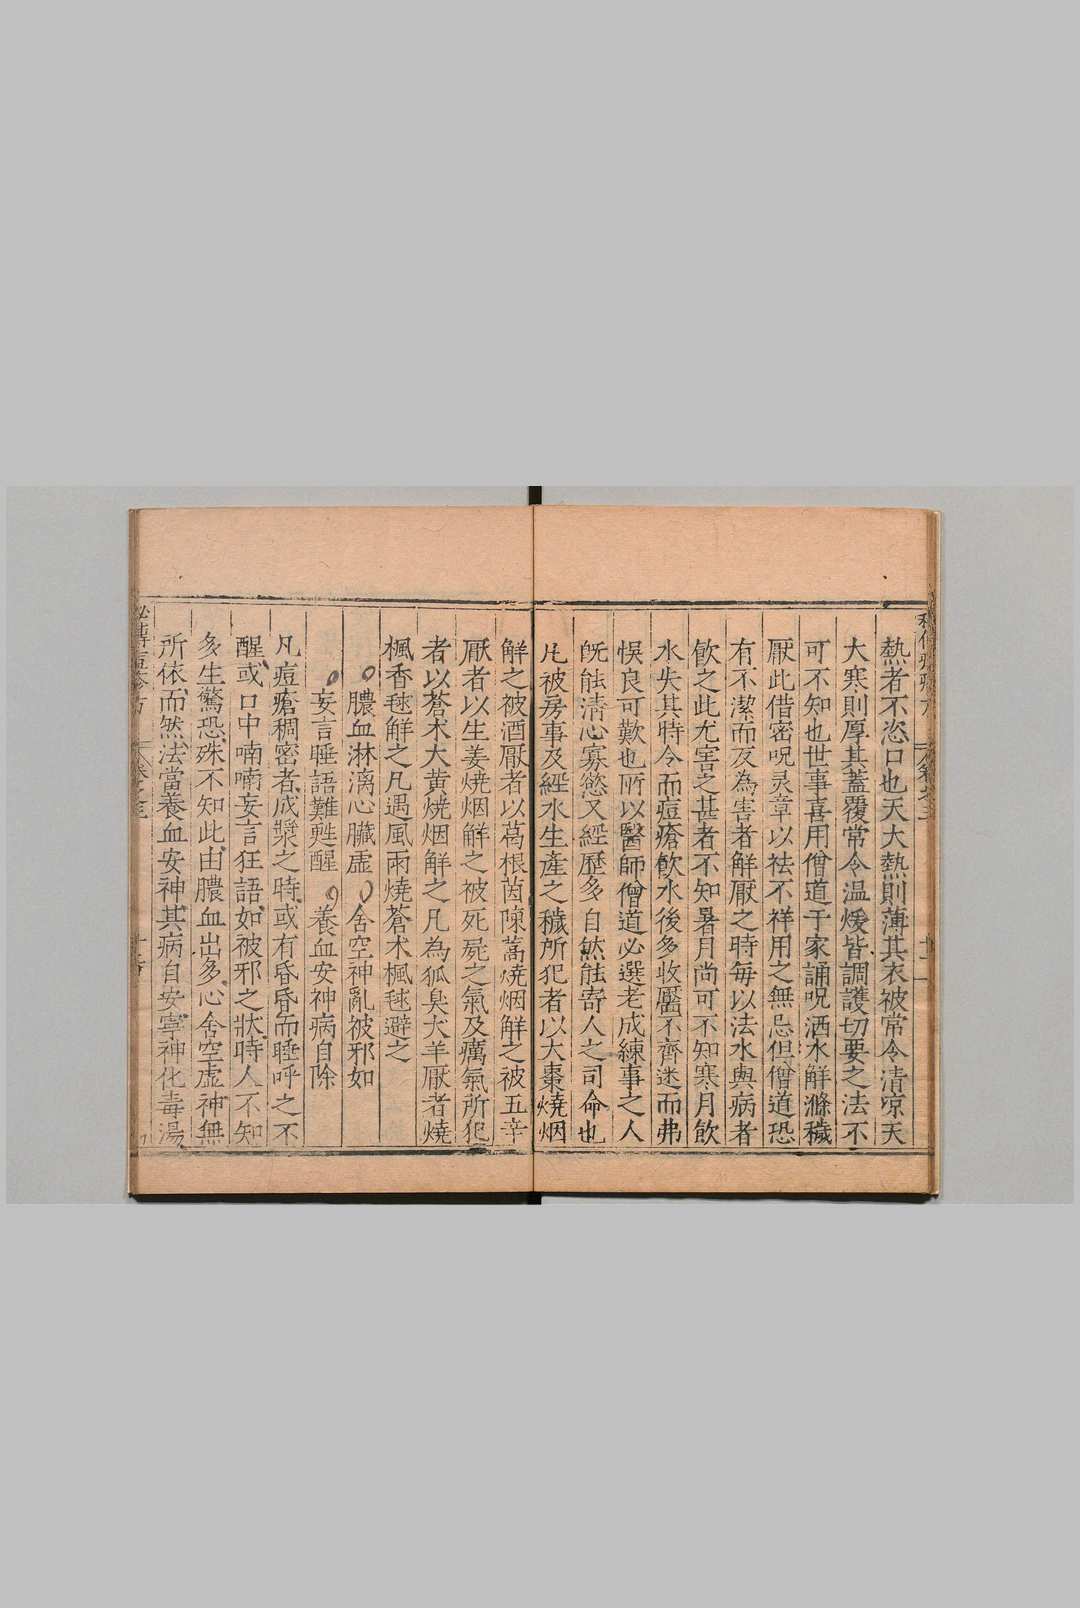 熱者不恣口也天大熱則薄其衣被常令清凉天
大寒則厚其蓋覆常令温煖皆調護切要之法不
可不知也世事喜用僧道于家誦呪洒水觧滌穢
厭此借密呪灵章以祛不祥用之無忌但僧道恐
有不潔而反為害者觧厭之時每以法水與病者
飲之此尤害之甚者不知暑月尚可不知寒月飲
水失其時令而痘瘡飲水後多收靨不齊迷而弗
悮良可歎也所以醫師僧道必選老成練事之人
既能清心寡慾又經歷多自然能寄人之司命也
凡被房事及經水生產之穢所犯者以大棗燒烟
觧之被酒厭者以葛根茵蔯蒿燒烟觧之被五辛
厭者以生姜燒烟觧之被死屍之氣及癘氣所犯
者以蒼术大黄燒烟觧之凡為狐臭犬羊厭者燒
楓香毬觧之凡遇風雨燒蒼术楓毬避之
膿血淋漓心臟虛 舍空神亂被邪如
妄言睡語難甦醒 養血安神病自除
凡痘瘡稠密者成漿之時或有昏昏而睡呼之不
醒或口中喃喃妄言狂語如被邪之狀時人不知
多生驚恐殊不知此由膿血出多心舍空虛神無
所依而然法當養血安神其病自安寧神化毒湯
秘傳痘疹方 卷之三